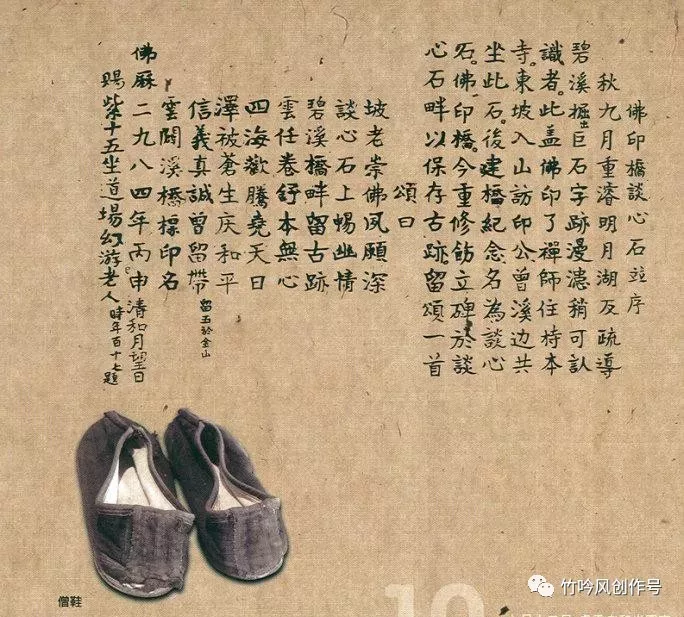 佛印橋談心石並序
秋九月重濬明月湖及疏導
碧溪掘出巨石字跡漫漶稍可認
識者。此盖佛印了禪師住持本
寺。東坡入山訪印公曾溪边共
坐此石。後建橋紀念名為談心
石。佛印橋。今重修飭立碑於談
心石畔以保存古跡。留頌一首
頌曰
坡老崇佛夙願深
談心石上暢幽情
碧溪橋畔留古跡
雲任卷舒本無心
四海歡騰堯天日
澤被蒼生庆和平
信義真誠曾留帶 留玉於金山
雲閒溪橋標印名
佛厤二九八四年丙申清和月望日
賜紫十五坐道場幻游老人 時年百十七題
僧鞋
竹吟风创作号
10